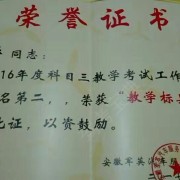 荣誉证书
同志：
16年度科目三教学考试工作
名第二，，荣获“教学标兵
此证，以资鼓励。
安徽军英